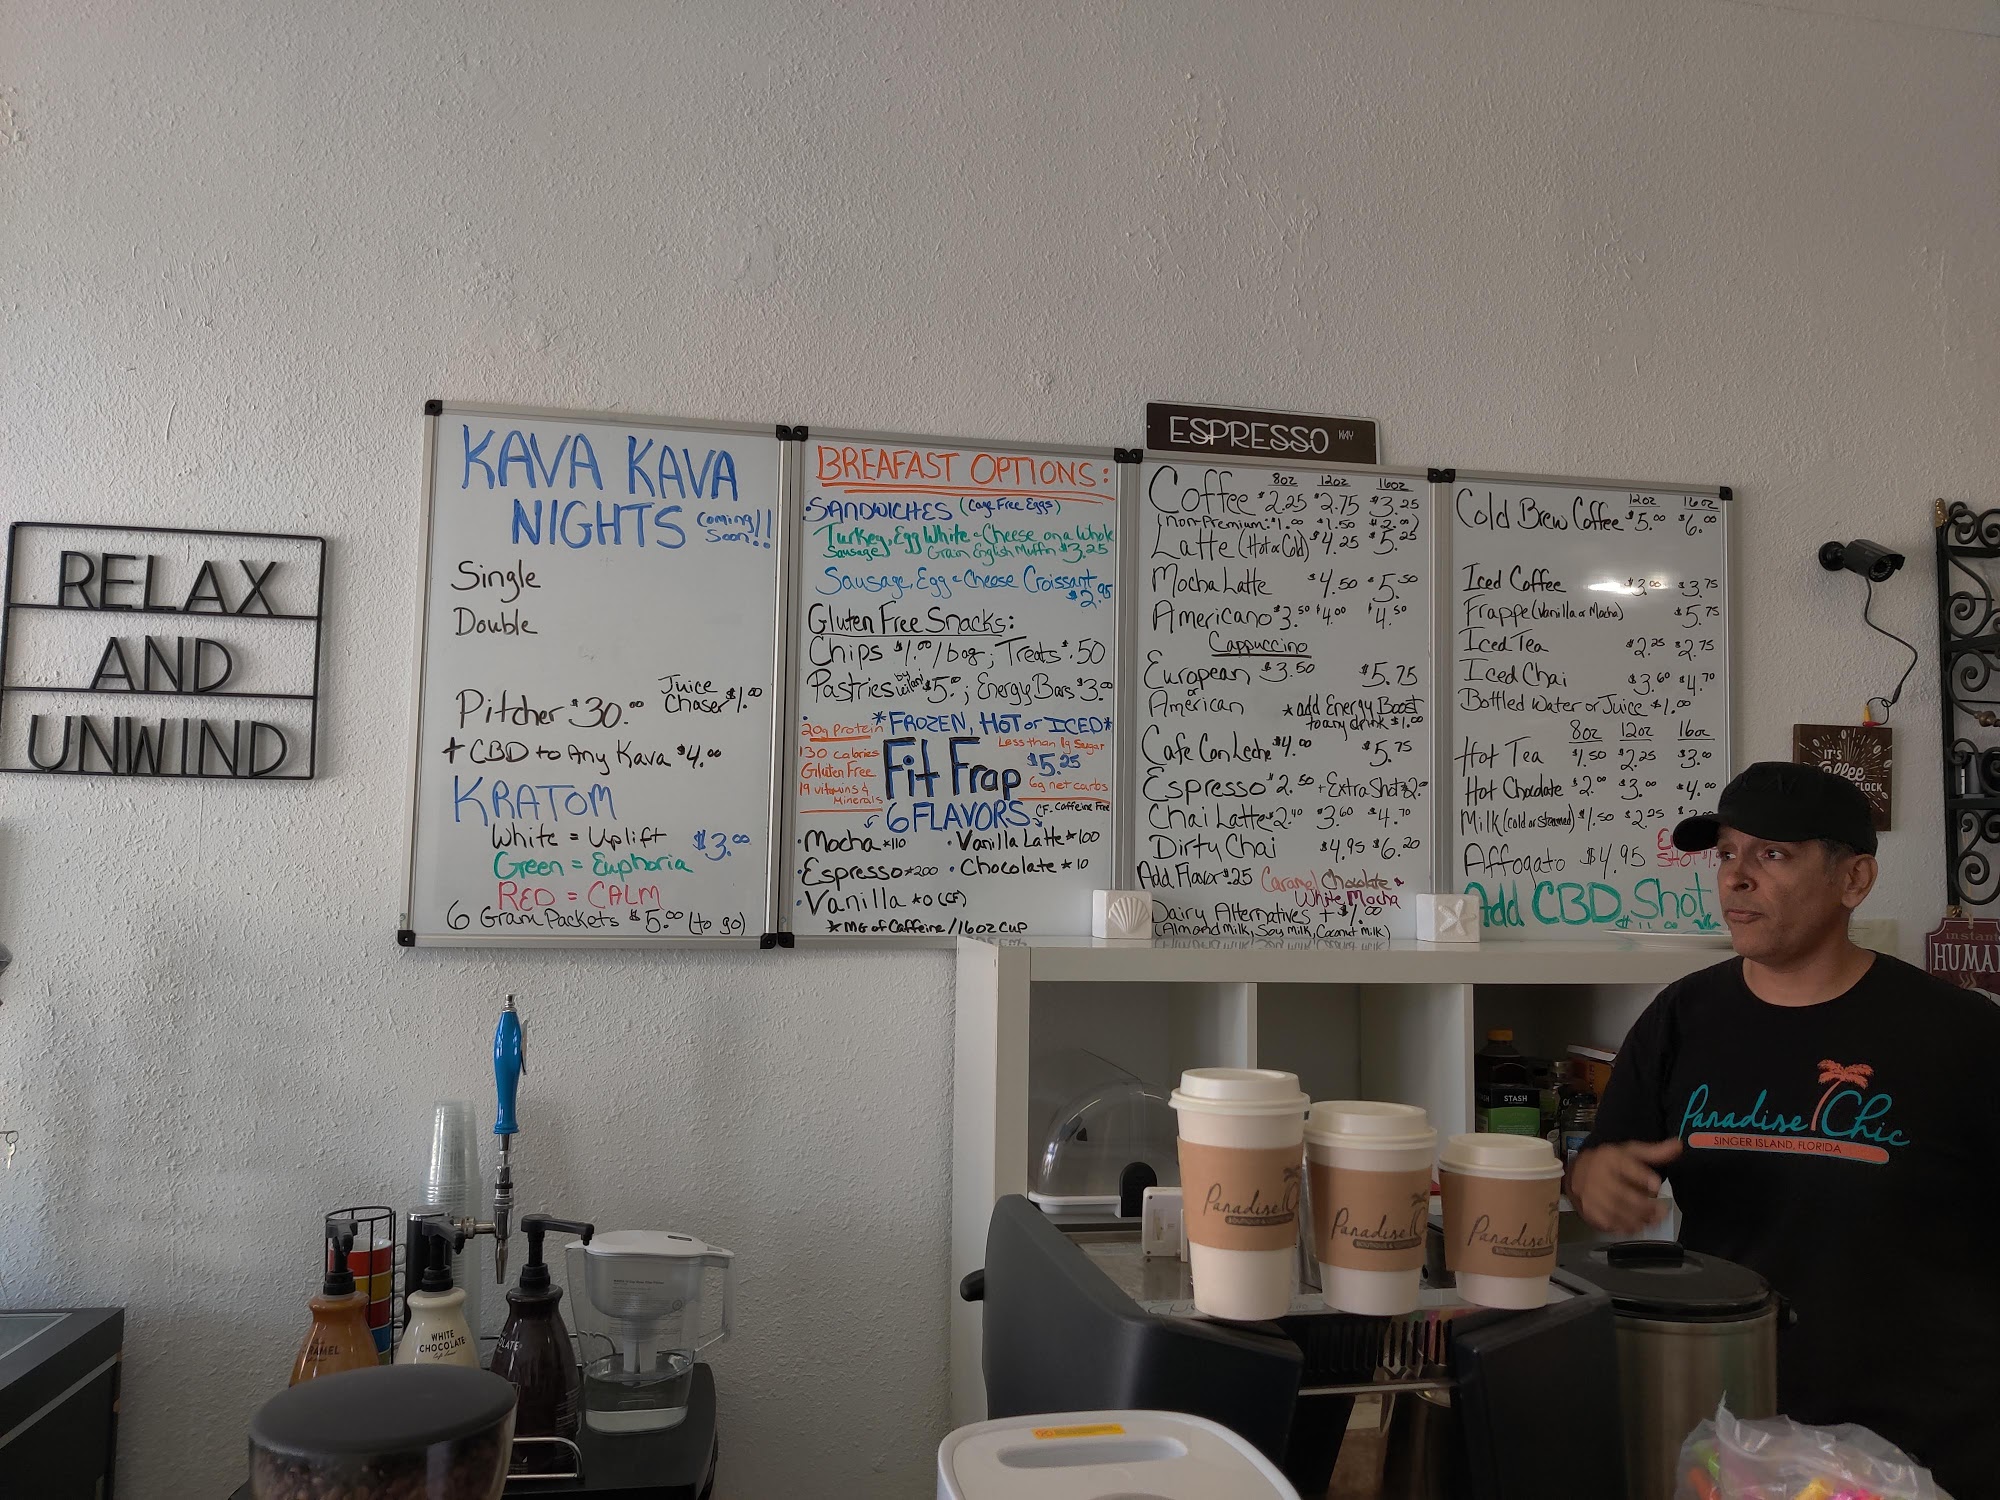 RELAX
AND
UNWIND
KAVA KAVA
NIGHTS Coming Soon!!
Single
Double
Pitcher $30.00 Juice Chaser $1.00
+ CBD to Any Kava $4.00
KRATOM
White = Uplift $3.00
Green = Euphoria
RED = CALM
6 Gram Packets $5.00 (to go)
BREAFAST OPTIONS:
• SANDWICHES (Cage Free Eggs)
Turkey Sausage, Egg White & Cheese on a Whole
Grain English Muffin $3.25
Sausage, Egg & Cheese Croissant
$2.95
Gluten Free Snacks:
Chips $1.00/bag; Treats $.50
Pastries $5.00; Energy Bars $3.00
*FROZEN, HOT or ICED*
20g Protein
130 calories
Gluten Free
19 vitamins &
Minerals
Fit Frap
Less than 1g Sugar
$5.25
6g net carbs
CF- Caffeine Free
6 FLAVORS
• Mocha *110 • Vanilla Latte *100
• Espresso *200 • Chocolate *10
• Vanilla *0 (CF)
* MG of Caffeine/16oz CUP
ESPRESSO WAY
8oz 12oz 16oz
Coffee $2.25 $2.75 $3.25
(non-Premium: $1.00 $1.50 $2.00)
Latte (Hot or Cold) $4.25 $5.25
Mocha Latte $4.50 $5.50
Americano $3.50 $4.00 $4.50
Cappuccino
European $3.50 $5.75
or
American
* add Energy Boost
to any drink $1.00
Cafe Con Leche $4.00 $5.75
Espresso $2.50 + Extra Shot $2.00
Chai Latte $2.40 $3.60 $4.70
Dirty Chai $4.95 $6.20
Add Flavor $.25 Caramel Chocolate &
White Mocha
Dairy Alternatives + $1.00
(Almond milk, Soy milk, Coconut milk)
12oz 16oz
Cold Brew Coffee $5.00 $6.00
Iced Coffee $3.00 $3.75
Frappe (Vanilla or Mocha) $5.75
Iced Tea $2.25 $2.75
Iced Chai $3.60 $4.70
Bottled Water or Juice $1.00
8oz 12oz 16oz
Hot Tea $1.50 $2.25 $3.00
Hot Chocolate $2.00 $3.00 $4.00
Milk (Cold or Steamed) $1.50 $2.25
Affogato $4.95
SHOT
Add CBD Shot
IT'S
Coffee
instant
HUMA
Paradise Chic
SINGER ISLAND, FLORIDA
STASH
Paradise
Paradise
Paradise
WHITE
CHOCOLATE